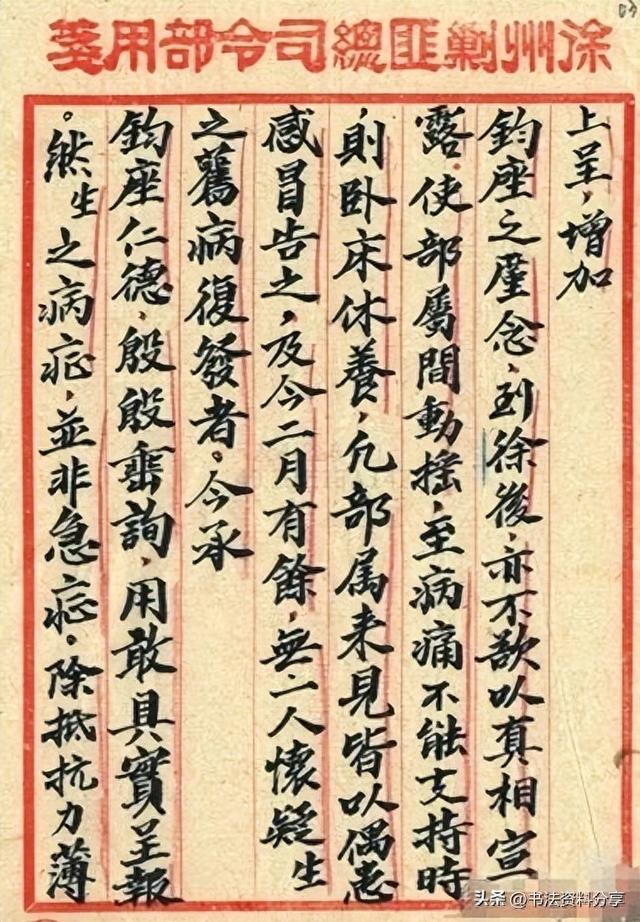 徐州剿匪總司令部用箋
上呈，增加
鈞座之廑念，到徐後，亦不欲以真相宣
露，使部屬間動搖，至病痛不能支持時
，則卧床休養，凡部属来見皆以偶患
感冒告之，及今二月有餘，無一人懷疑生
之舊病復發者。今承
鈞座仁德，殷殷垂詢，用敢具實呈報
。然生之病症，並非急症。除抵抗力薄
头条@书法资料分享